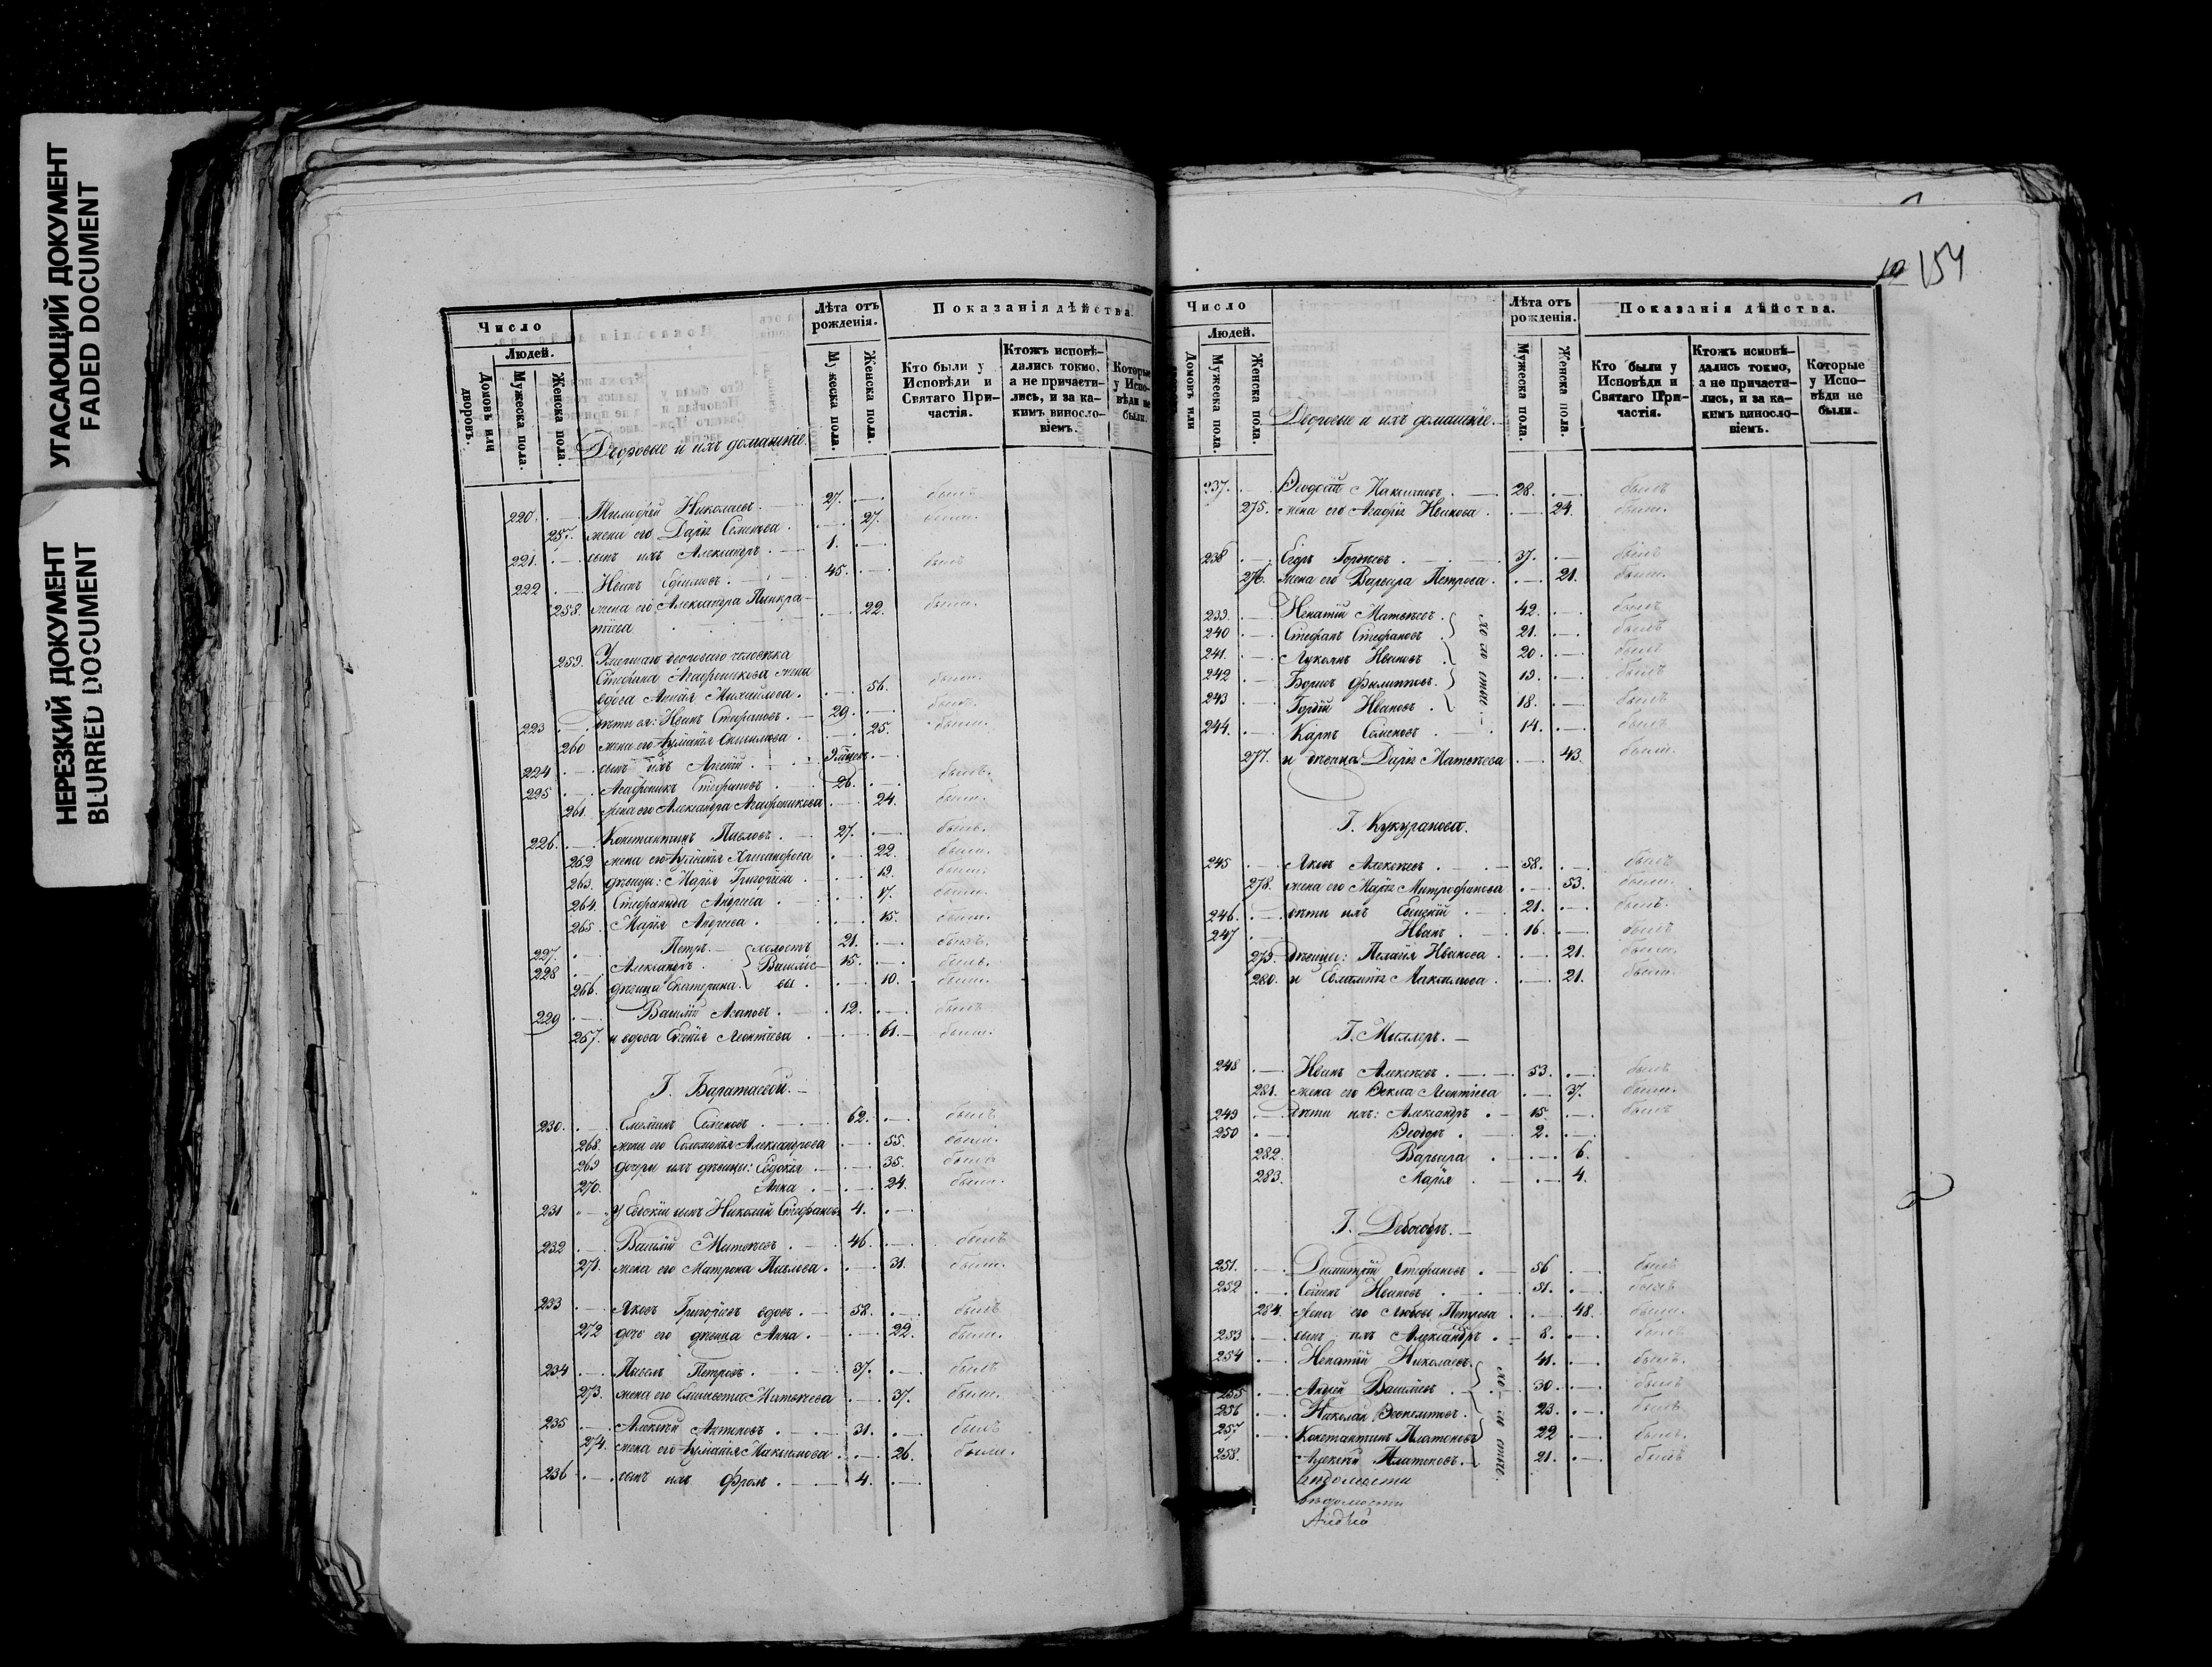 УГАСАЮЩИЙ ДОКУМЕНТ
FADED DOCUMENT
НЕРЕЗКИЙ ДОКУМЕНТ
BLURRED DOCUMENT
Число
Людей.
Домовъ или дворовъ.
Мужеска пола.
Женска пола.
Дворовые и ихъ домашніе.
Лѣта отъ рожденія.
Мужеска пола.
Женска пола.
Показанія дѣйства.
Кто были у Исповѣди и Святаго Причастія.
Ктожъ исповѣдались токмо, а не причастились, и за какимъ винословіемъ.
Которые у Исповѣди не были.
220. Николаевъ 27. былъ
257. жена его Дарія Семенова 27. была
221. сынъ ихъ Александръ 1.
222 Иванъ Ефимовъ 45. былъ
258. жена его Александра Панкра-
тіева 22. была
259. Умершаго двороваго человѣка
Стефана Агафоникова жена
вдова Михайлова 56. была
223 дѣти ея: Иванъ Стефановъ 29. былъ
260 жена его 25. была
224 сынъ ихъ
225 Агафоникъ Стефановъ 26. былъ.
261. жена его Александра Агафоникова 24. была.
226. Константинъ Павловъ 27. былъ.
262 жена его 22. была.
263. дѣвицы: Марія Григорьева 19. была.
264. Стефанида Андреева 17. была.
265. Марія Андреева 15. была.
227. Петръ холостъ 21. былъ.
228 Александръ Василье- 15. былъ.
266. дѣвица Екатерина вы 10. была.
229 Василій Агаповъ 12. былъ
267. и вдова Леонтіева 61. была.
Г. Баратаевой.
230. Семеновъ 62. былъ
268. жена его Соломонія Александрова 55. была.
269 дочери ихъ дѣвицы: Евдокія 35. была
270. Анна 24. была.
231 у Евдокіи сынъ Николай Стефановъ 4.
232 Василій Матвѣевъ 46. былъ
271. жена его Матрона Павлова 31. была.
233 Яковъ Григорьевъ вдовъ 52. былъ
272 дочь его дѣвица Анна 22. была.
234 Павелъ Петровъ 37. былъ
273. жена его Елисавета Матвѣева 37. была.
235 Алексѣй Антоновъ 31. былъ
274. жена его Максимова 26. была.
236 сынъ ихъ Фролъ 4.
154
Число
Людей.
Домовъ или
Мужеска пола.
Женска пола.
Дворовые и ихъ домашніе.
Лѣта отъ рожденія.
Мужеска пола.
Женска пола.
Показанія дѣйства.
Кто были у Исповѣди и Святаго Причастія.
Ктожъ исповѣдались токмо, а не причастились, и за какимъ винословіемъ.
Которые у Исповѣди не были.
237. Максимовъ 28. былъ
275. жена его Агафія Иванова 24. была.
238 Егоръ Гордѣевъ 37. былъ
276. жена его Варвара Петрова 21. была.
239. Игнатій Матвѣевъ 42. былъ
240 Стефанъ Стефановъ 21. былъ
241. Лукіянъ Ивановъ 20. былъ
242 Борисъ Филипповъ 19. былъ
243 Гордѣй Ивановъ 18. былъ
холостые
244. Карпъ Семеновъ 14. былъ
277. и дѣвица Дарія Матвѣева 43. была.
Г. Кукуранова.
245 Яковъ Алексѣевъ 58. былъ
278. жена его Марія Митрофанова 53. была.
246. дѣти ихъ 21. былъ.
247 Иванъ 16. былъ
279. дѣвицы: Пелагія Иванова 21. была.
280. и Максимова 21. была.
Г. Миллеръ.
248 Иванъ Алексѣевъ 53. былъ
281. жена его Ѳекла Леонтіева 37. была.
249 дѣти ихъ: Александръ 15. былъ
250 Ѳеодоръ 2.
282. Варвара 6.
283. Марія 4.
251. Димитрій Стефановъ 56 былъ
252 Семенъ Ивановъ 51. былъ
284. жена его Любовь Петрова 48. была.
253 сынъ ихъ Александръ 8. былъ
254 Игнатій Николаевъ 41. былъ.
255 Андрей Васильевъ 30. былъ
256 Николай 23. былъ
257 Константинъ Платоновъ 22 былъ.
258. Алексѣй Платоновъ 21. былъ
холостые
вѣдомости
вѣдомости